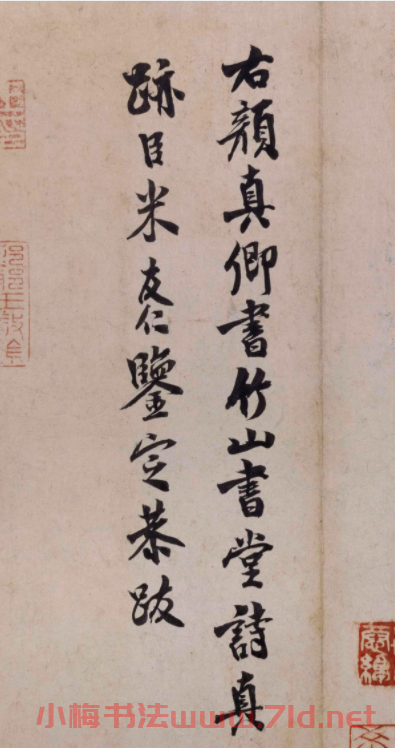 右顏真卿書竹山書堂詩真
跡臣米友仁鑒定恭跋
小梅书法www.7ld.net